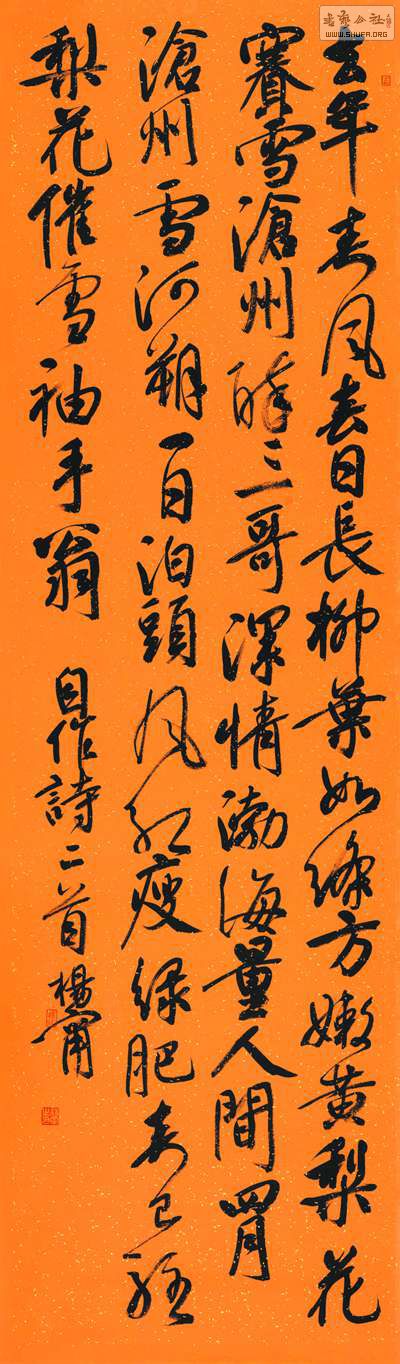 去年春风春日長柳葉如絛方嫩黄梨花
賽雪滄州醉三哥深情渤海量人間四月
滄州雪河朔一日泊頭风红瘦绿肥春已
梨花催雪袖手翁
自作詩二首楊
書法公社
WWW.SHUFA.ORG